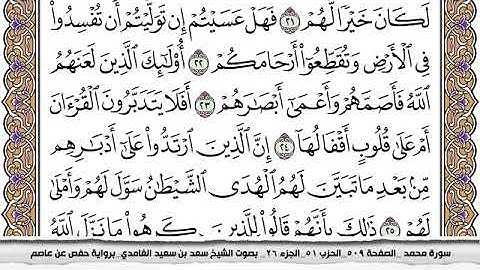 لَكَانَ خَيْرًا لَّهُمْ ٢١ فَهَلْ عَسَيْتُمْ إِن تَوَلَّيْتُمْ أَن تُفْسِدُوا۟
فِى ٱلْأَرْضِ وَتُقَطِّعُوٓا۟ أَرْحَامَكُمْ ٢٢ أُو۟لَٰٓئِكَ ٱلَّذِينَ لَعَنَهُمُ
ٱللَّهُ فَأَصَمَّهُمْ وَأَعْمَىٰٓ أَبْصَٰرَهُمْ ٢٣ أَفَلَا يَتَدَبَّرُونَ ٱلْقُرْءَانَ
أَمْ عَلَىٰ قُلُوبٍ أَقْفَالُهَآ ٢٤ إِنَّ ٱلَّذِينَ ٱرْتَدُّوا۟ عَلَىٰٓ أَدْبَٰرِهِم
مِّنۢ بَعْدِ مَا تَبَيَّنَ لَهُمُ ٱلْهُدَى ٱلشَّيْطَٰنُ سَوَّلَ لَهُمْ وَأَمْلَىٰ
لَهُمْ ٢٥ ذَٰلِكَ بِأَنَّهُمْ قَالُوا۟ لِلَّذِينَ كَرِهُوا۟ مَا نَزَّلَ ٱللَّهُ
سورة محمد _الصفحة ٥٠٩_ الحزب ٥١_ الجزء ٢٦_ بصوت الشيخ سعد بن سعيد الغامدي_ برواية حفص عن عاصم